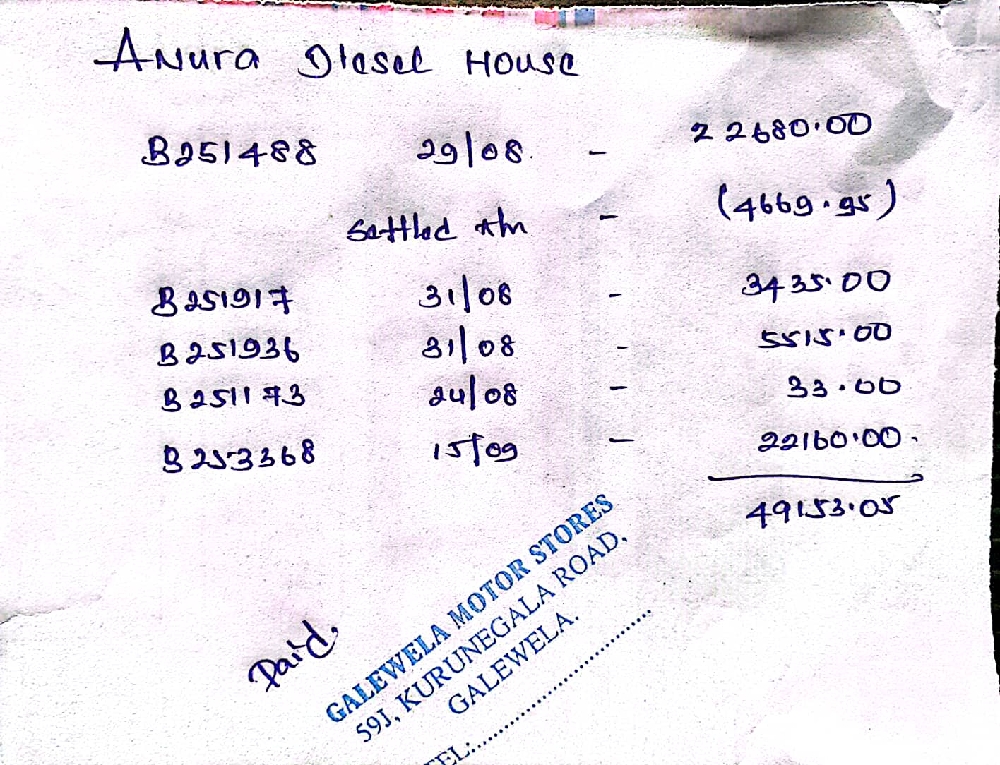 Anura Diesel House
B251488 29/08 - 22680.00
Settled - (4669.95)
B251917 31/08 - 3435.00
B251936 31/08 - 5515.00
B251173 24/08 - 33.00
B253368 15/09 - 22160.00
49153.05
Paid
GALEWELA MOTOR STORES
59J, KURUNEGALA ROAD,
GALEWELA.
TEL:....................